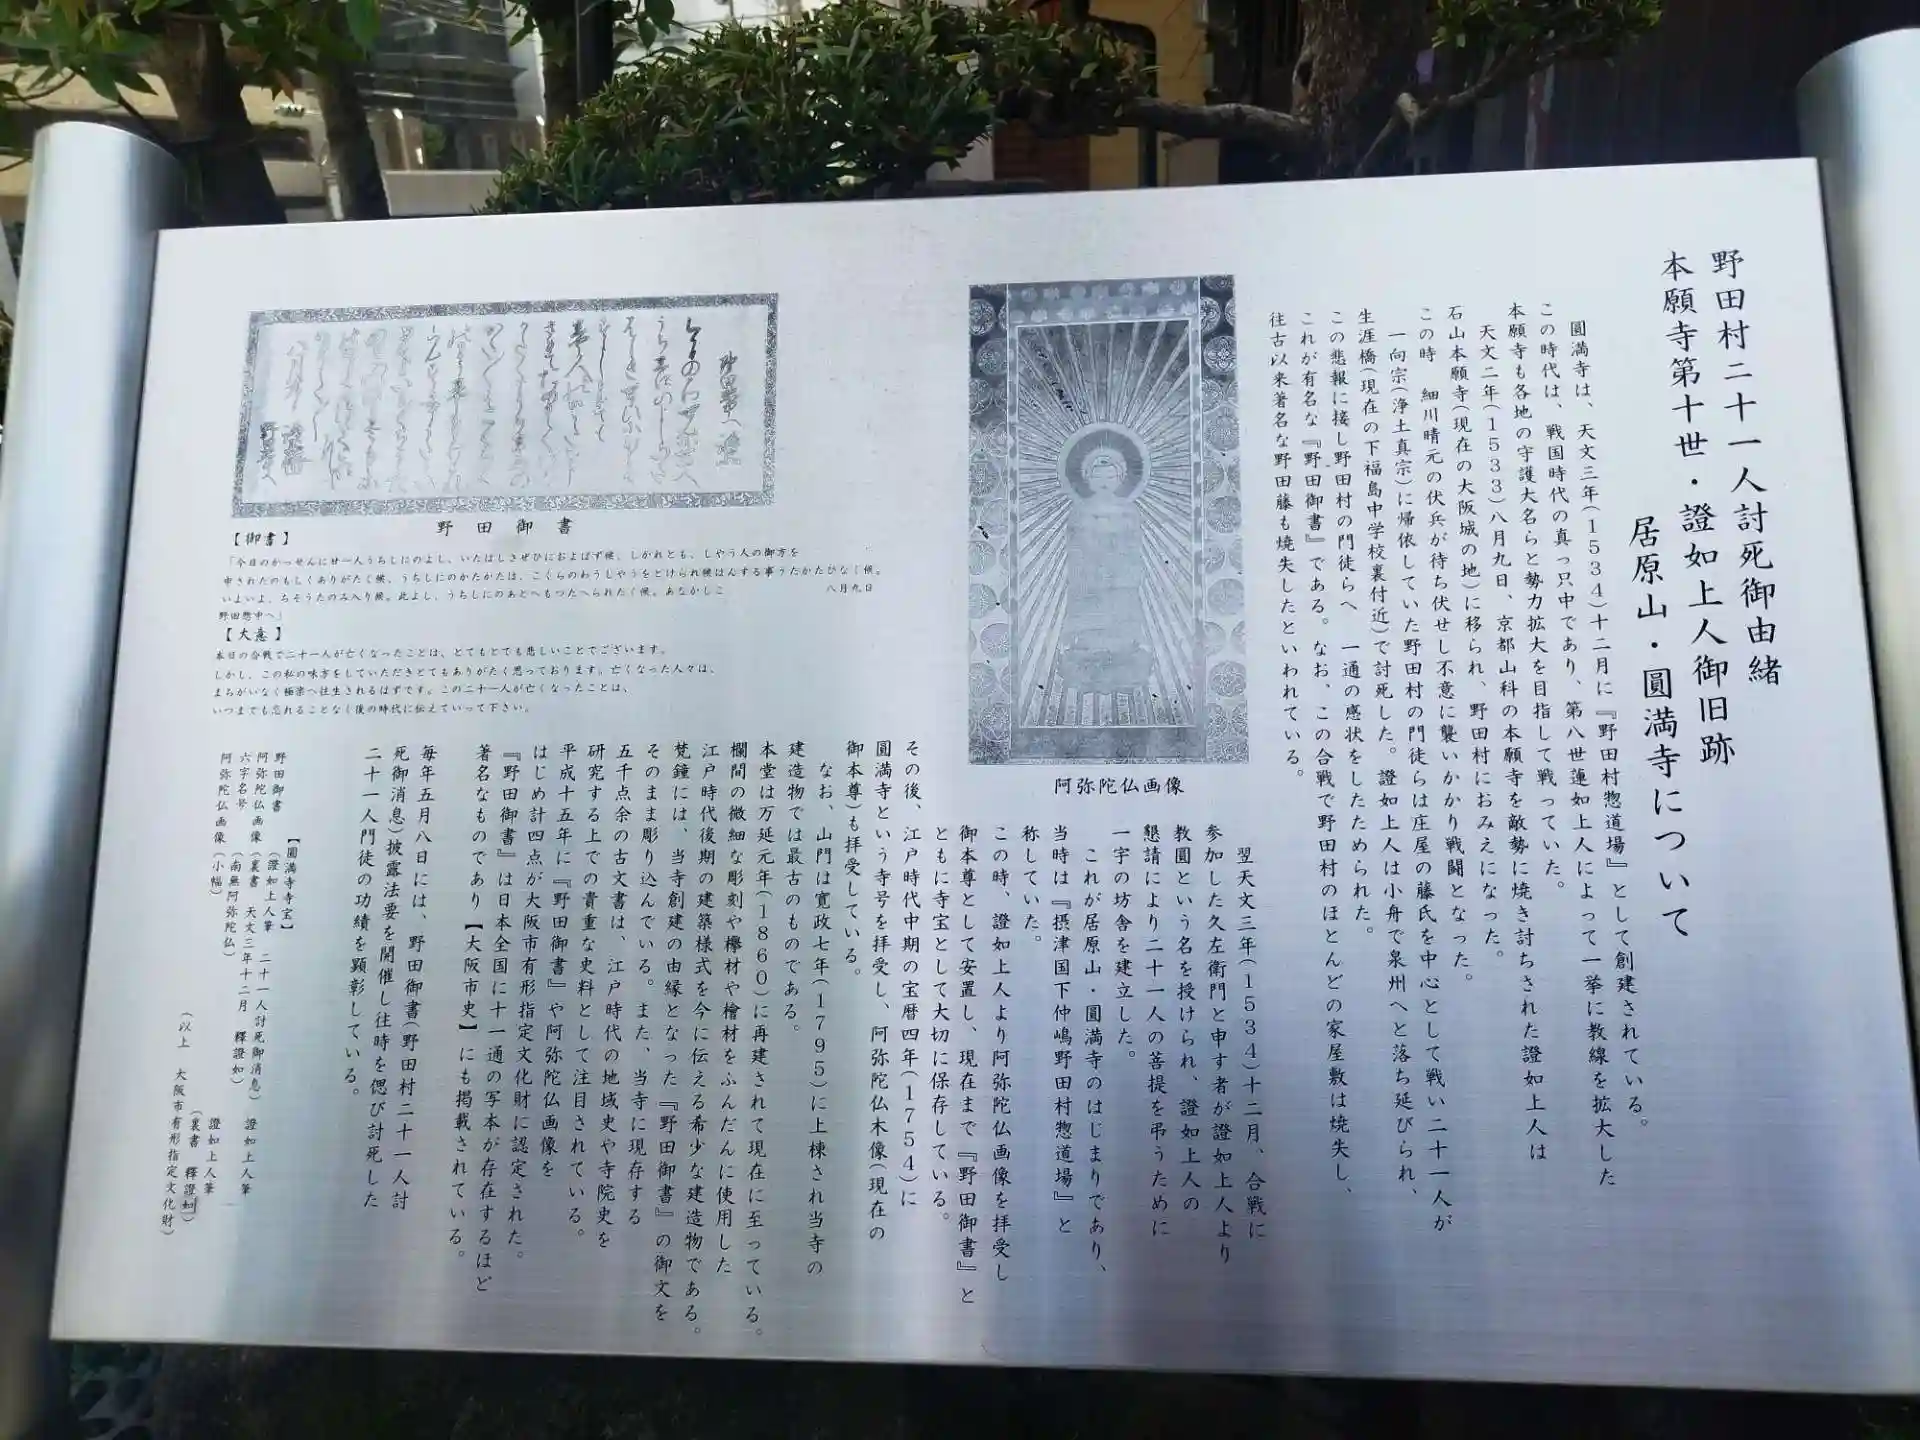 野田村二十一人討死御由緒
本願寺第十世・證如上人御旧跡
居原山・圓満寺について
圓満寺は、天文三年(1534)十二月に『野田村惣道場』として創建されている。
この時代は、戦国時代の真っ只中であり、第八世蓮如上人によって一挙に教線を拡大した
本願寺も各地の守護大名らと勢力拡大を目指して戦っていた。
天文二年(1533)八月九日、京都山科の本願寺を敵勢に焼き討ちされた證如上人は
石山本願寺(現在の大阪城の地)に移られ、野田村におみえになった。
この時 細川晴元の伏兵が待ち伏せし不意に襲いかかり戦闘となった。
一向宗(浄土真宗)に帰依していた野田村の門徒らは庄屋の藤氏を中心として戦い二十一人が
生涯橋(現在の下福島中学校裏付近)で討死した。證如上人は小舟で泉州へと落ち延びられ、
この悲報に接し野田村の門徒らへ 一通の感状をしたためられた。
これが有名な『野田御書』である。なお、この合戦で野田村のほとんどの家屋敷は焼失し、
往古以来著名な野田藤も焼失したといわれている。
阿弥陀仏画像
翌天文三年(1534)十二月、合戦に
参加した久左衛門と申す者が證如上人より
教圓という名を授けられ、證如上人の
懇請により二十一人の菩提を弔うために
一宇の坊舎を建立した。
これが居原山・圓満寺のはじまりであり、
当時は『摂津国下仲嶋野田村惣道場』と
称していた。
この時、證如上人より阿弥陀仏画像を拝受し
御本尊として安置し、現在まで『野田御書』と
ともに寺宝として大切に保存している。
江戸時代中期の宝暦四年(1754)に
その後、
圓満寺という寺号を拝受し、阿弥陀仏木像(現在の
御本尊)も拝受している。
なお、山門は寛政七年(1795)に上棟され当寺の
建造物では最古のものである。
本堂は万延元年(1860)に再建されて現在に至っている。
欄間の微細な彫刻や欅材や檜材をふんだんに使用した
江戸時代後期の建築様式を今に伝える希少な建造物である。
梵鐘には、当寺創建の由縁となった『野田御書』の御文を
そのまま彫り込んでいる。また、当寺に現存する
五千点余の古文書は、江戸時代の地域史や寺院史を
研究する上での貴重な史料として注目されている。
平成十五年に『野田御書』や阿弥陀仏画像を
はじめ計四点が大阪市有形指定文化財に認定された。
『野田御書』は日本全国に十一通の写本が存在するほど
著名なものであり【大阪市史】にも掲載されている。
毎年五月八日には、野田御書(野田村二十一人討
死御消息)披露法要を開催し往時を偲び討死した
二十一人門徒の功績を顕彰している。
野田御書
【御書】
「今日のかっせんに廿一人うちしにのよし、いたはしさぜひにおよばず候、しかれとも、しやう人の御方を
申されたのもしくありがたく候、うちしにのかたかたは、こくらのわうしやうをとけられ候はんする事うたかたひなく候。
いよいよ、ちそうたのみ入り候。此よし、うちしにのあとへもつたへられたく候。あなかしこ 八月九日
野田惣中へ」
【大意】
本日の合戦で二十一人が亡くなったことは、とてもとても悲しいことでございます。
しかし、この私の味方をしていただきとてもありがたく思っております。亡くなった人々は、
まちがいなく極楽へ往生されるはずです。この二十一人が亡くなったことは、
いつまでも忘れることなく後の時代に伝えていって下さい。
【圓満寺寺宝】
野田御書 (證如上人筆 二十一人討死御消息) 證如上人筆
阿弥陀仏画像 (裏書 天文三年十二月 釋證如)
六字名号 (南無阿弥陀仏) 證如上人筆
阿弥陀仏画像 (小幅) (裏書 釋證如)
(以上 大阪市有形指定文化財)